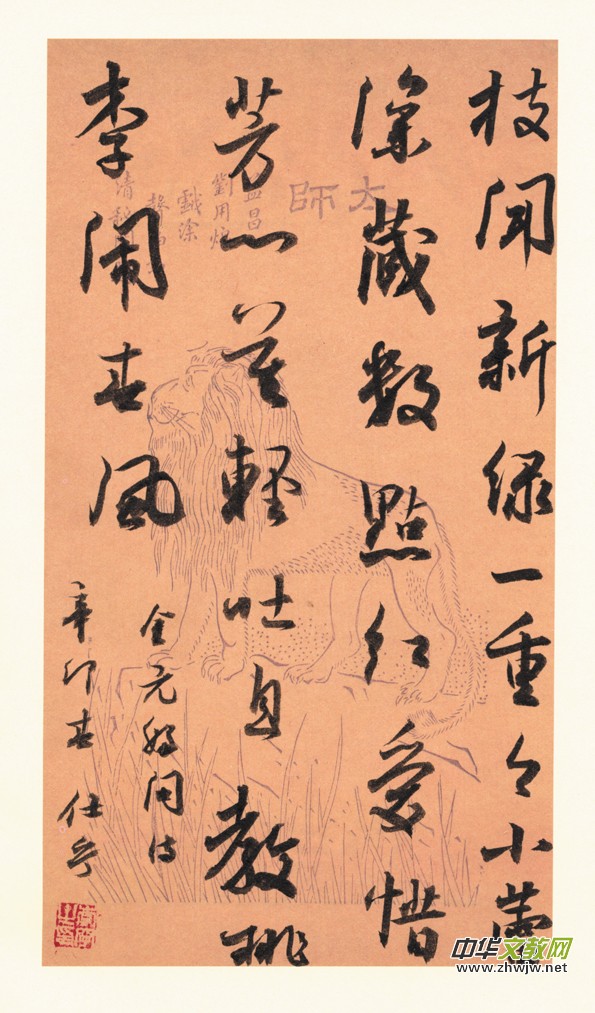 枝间新绿一重々小蕾
深藏数點红爱惜
芳心莫輕吐且教桃
李闹春风
金元好问诗
辛卯春
大師
中华文教网
www.zhwjw.net